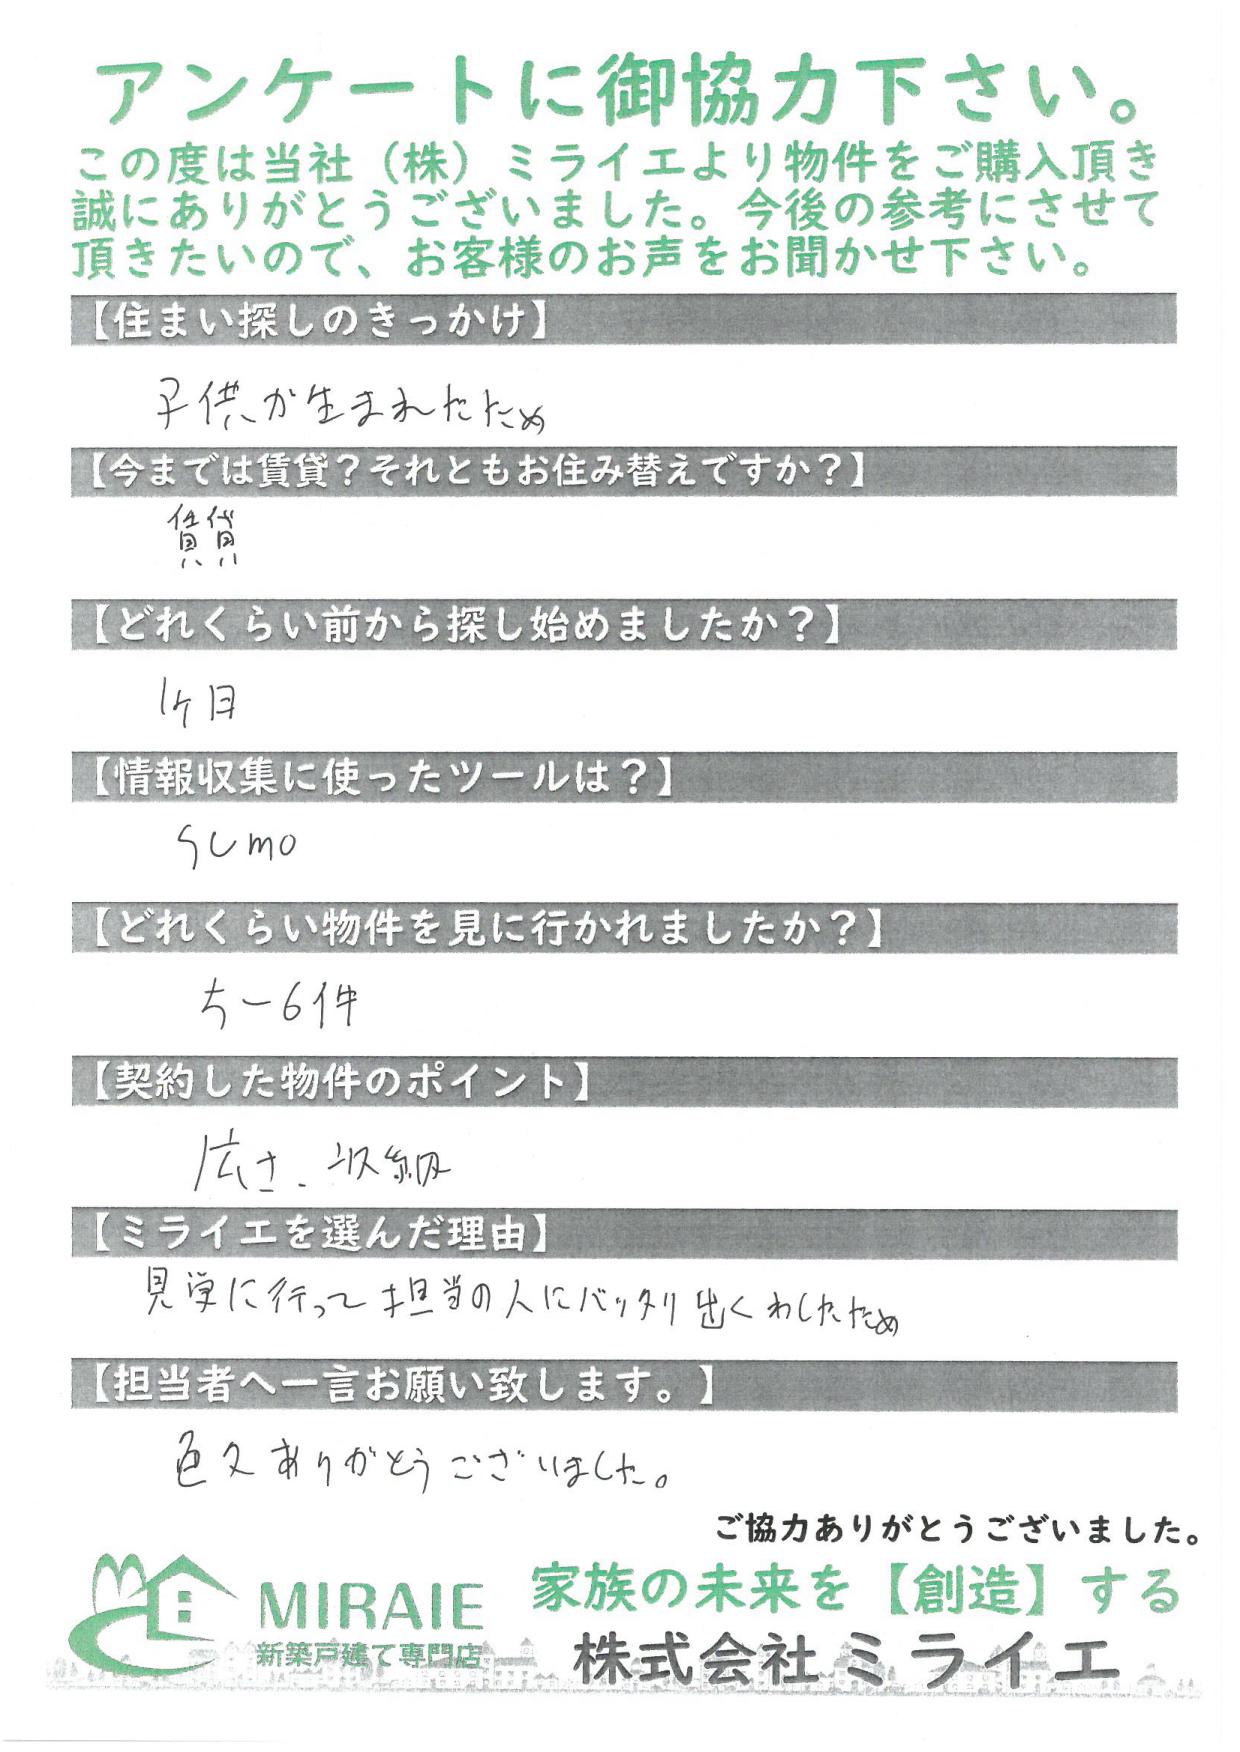 アンケートに御協力下さい。
この度は当社（株）ミライエより物件をご購入頂き
誠にありがとうございました。今後の参考にさせて
頂きたいので、お客様のお声をお聞かせ下さい。
【住まい探しのきっかけ】
子供が生まれたため
【今までは賃貸？それともお住み替えですか？】
賃貸
【どれくらい前から探し始めましたか？】
1ケ月
【情報収集に使ったツールは？】
SUMO
【どれくらい物件を見に行かれましたか？】
5〜6件
【契約した物件のポイント】
広さ、収納
【ミライエを選んだ理由】
見学に行って担当の人にバッタリ出くわしたため
【担当者へ一言お願い致します。】
色々ありがとうございました。
ご協力ありがとうございました。
MIRAIE
新築戸建て専門店
家族の未来を【創造】する
株式会社ミライエ